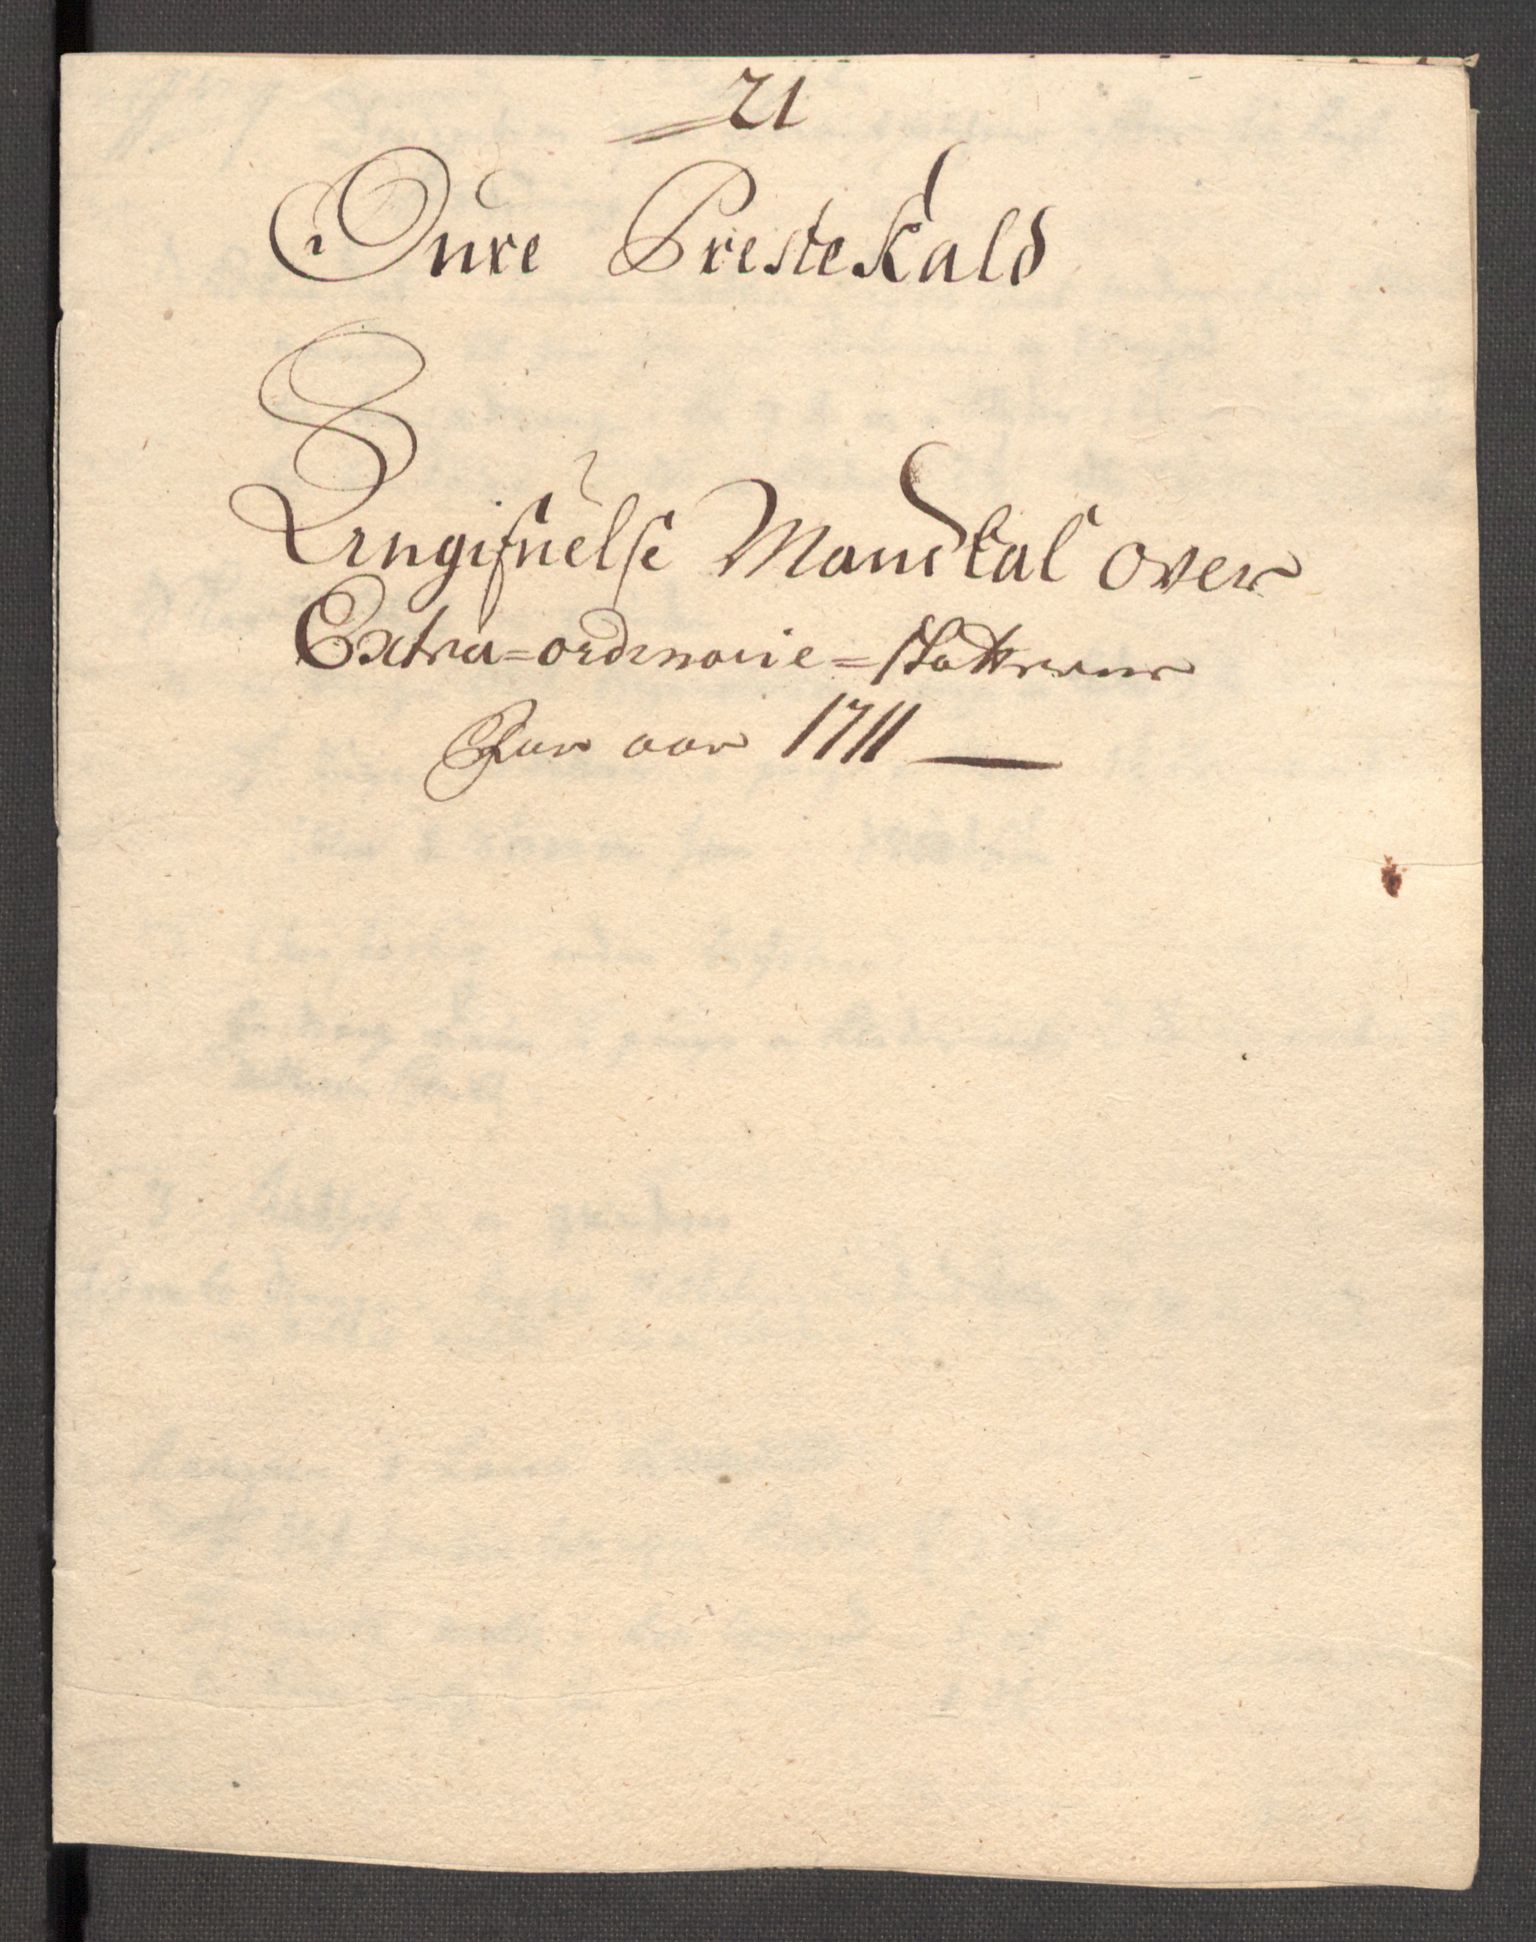 21
Oure Prestekald
Angifuelse Mandtal over
Extra=ordinarie=skatterne
For aar 1711